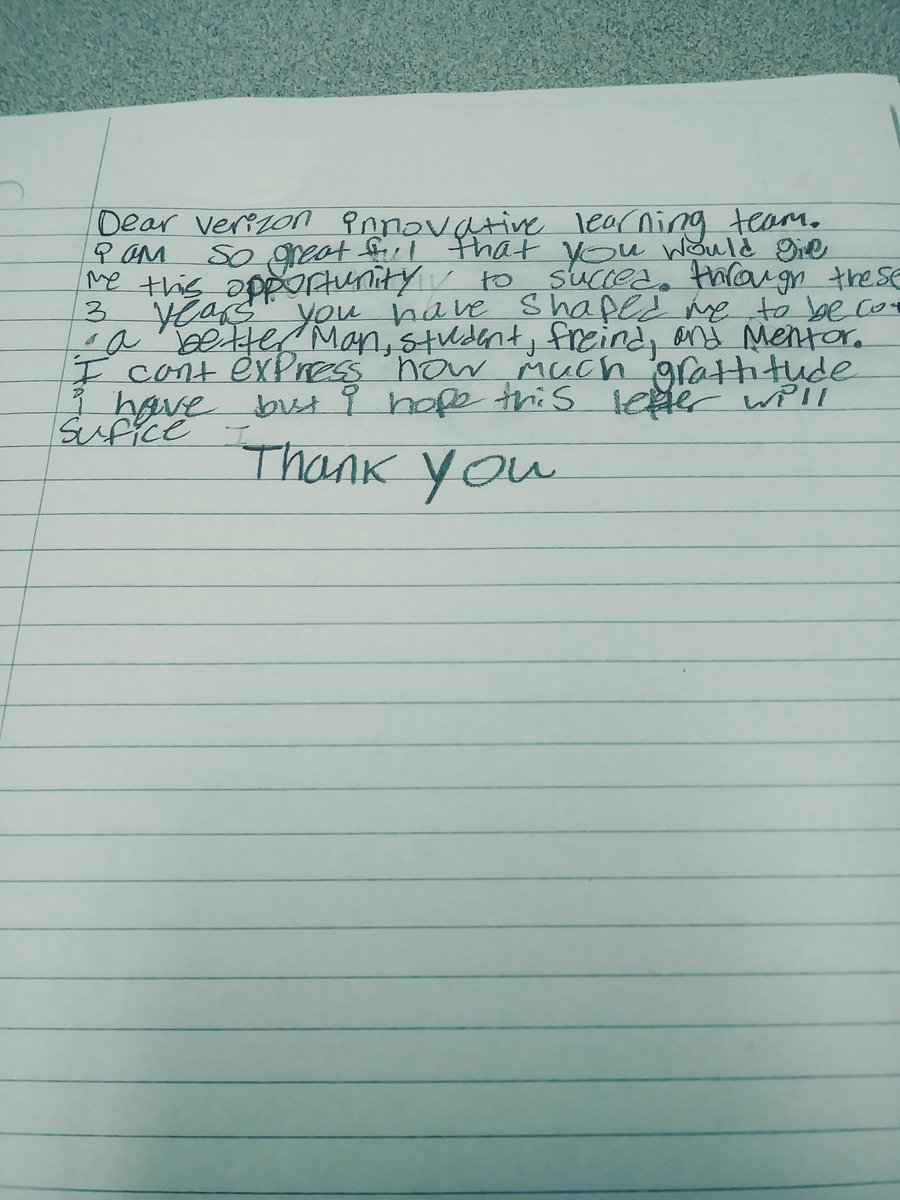 Dear verizon innovative learning team.
i am so greatful that you would give
me this opportunity to succed. through these
3 years you have shaped me to be
a better Man, student, freind, and Mentor.
I cant express how much grattitude
i have but i hope this letter will
sufice
Thank you